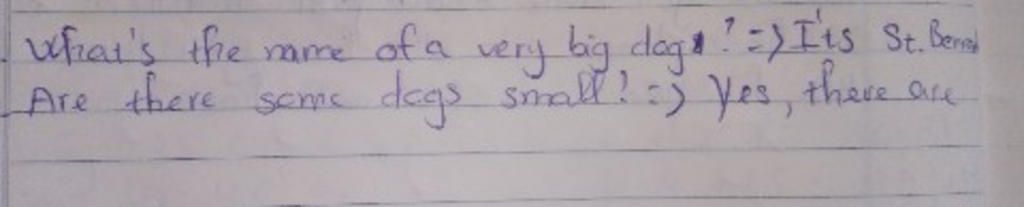 What's the name of a very big dog? => It's St. Berned
Are there some dogs small? => Yes, there are